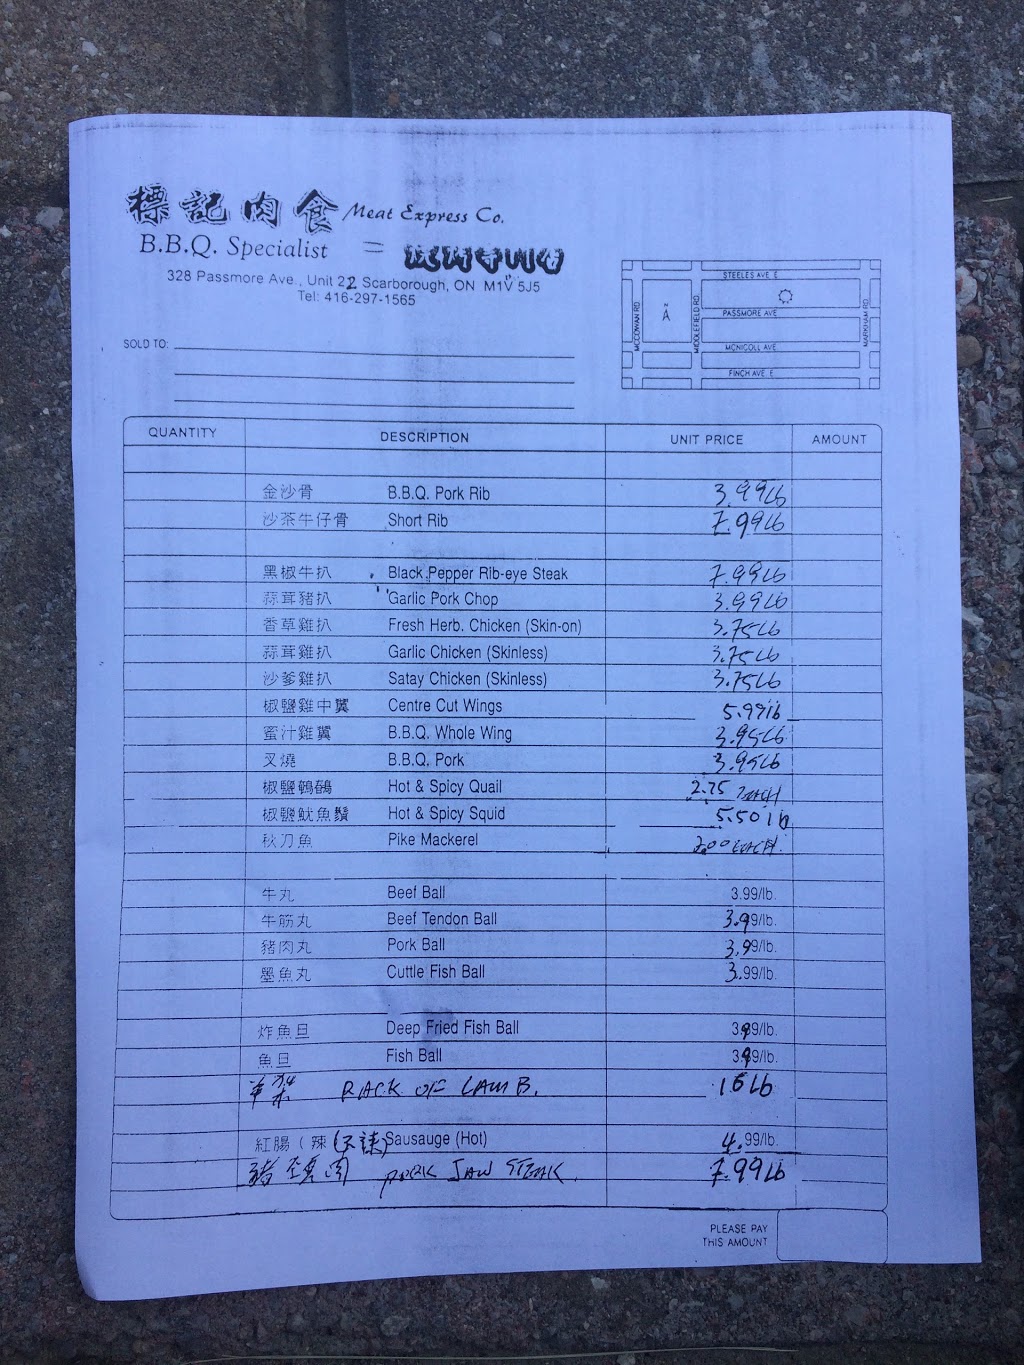 標記肉食 Meat Express Co.
B.B.Q. Specialist =
328 Passmore Ave., Unit 22 Scarborough, ON M1V 5J5
Tel: 416-297-1565
STEELES AVE. E
PASSMORE AVE
MCNICOLL AVE.
FINCH AVE. E
MCCOWAN RD.
MIDDLEFIELD RD.
MARKHAM RD.
N
SOLD TO:
QUANTITY DESCRIPTION UNIT PRICE AMOUNT
金沙骨 B.B.Q. Pork Rib 3.99Lb
沙茶牛仔骨 Short Rib 7.99Lb
黑椒牛扒 Black Pepper Rib-eye Steak 7.99Lb
蒜茸豬扒 Garlic Pork Chop 3.99Lb
香草雞扒 Fresh Herb. Chicken (Skin-on) 3.75Lb
蒜茸雞扒 Garlic Chicken (Skinless) 3.75Lb
沙爹雞扒 Satay Chicken (Skinless) 3.75Lb
椒鹽雞中翼 Centre Cut Wings 5.99lb
蜜汁雞翼 B.B.Q. Whole Wing 3.95Lb
叉燒 B.B.Q. Pork 3.95Lb
椒鹽鵪鶉 Hot & Spicy Quail 2.75 EACH
椒鹽魷魚鬚 Hot & Spicy Squid 5.50lb
秋刀魚 Pike Mackerel EACH
牛丸 Beef Ball 3.99/lb.
牛筋丸 Beef Tendon Ball 3.99/lb.
豬肉丸 Pork Ball 3.99/lb.
墨魚丸 Cuttle Fish Ball 3.99/lb.
炸魚旦 Deep Fried Fish Ball 3.99/lb.
魚旦 Fish Ball 3.99/lb.
RACK OF LAMB. Lb
紅腸 (辣) Sausauge (Hot) 4.99/lb.
豬頸肉 PORK JAW STEAK 7.99Lb
PLEASE PAY
THIS AMOUNT